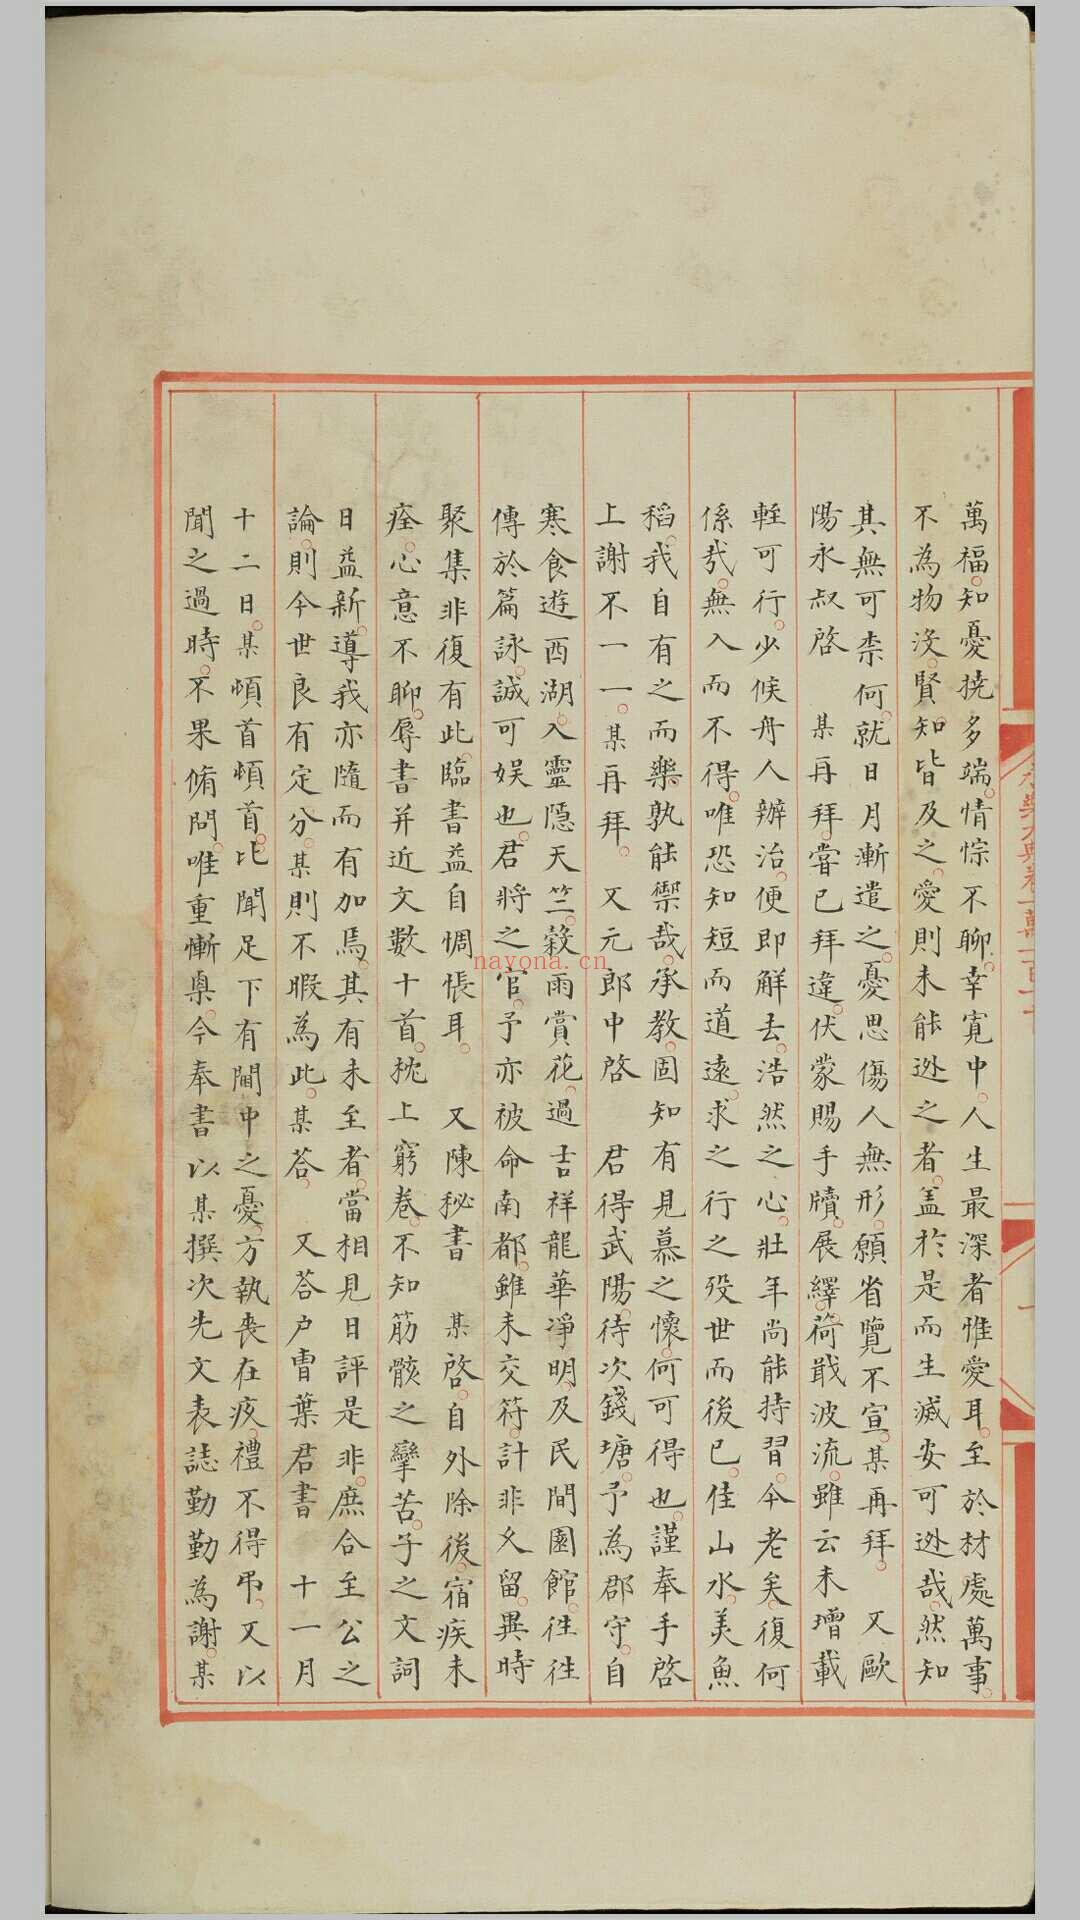 萬福知憂撓多端情悰不聊幸寬中人生最深者惟愛耳至於材處萬事
不為物沒賢知皆及之愛則未能逃之者盖於是而生滅安可逃哉然知
其無可柰何就日月漸遣之憂思傷人無形願省覽不宣某再拜 又歐
陽永叔啓 某再拜嘗已拜違伏蒙賜手牘展繹荷戢波流雖云未增載
輊可行少候舟人辦治便即解去浩然之心壯年尚能持習今老矣復何
係㢤無入而不得唯恐知短而道遠求之行之歿世而後已佳山水美魚
稻我自有之而樂孰能禦哉承教固知有見慕之懷何可得也謹奉手啓
上謝不一一某再拜 又元郎中啓 君得武陽待次錢塘予為郡守自
寒食遊西湖入靈隱天竺穀雨賞花過吉祥龍華凈明及民間園館徃徃
傳於篇詠誠可娱也君將之官予亦被命南都雖未交符計非久留異時
聚集非復有此臨書益自惆悵耳 又陳秘書 某啓自外除後宿疾未
痊心意不聊辱書并近文數十首枕上窮卷不知筋骸之攣苦子之文詞
日益新導我亦隨而有加焉其有未至者當相見日評是非庶合至公之
論則今世良有定分某則不暇為此某荅 又荅户曹葉君書 十一月
十二日某頓首頓首比聞足下有閫中之憂方執喪在疚禮不得弔又以
聞之過時不果脩問唯重慚臬今奉書以某撰次先文表誌勤勤為謝某
nayona.cn